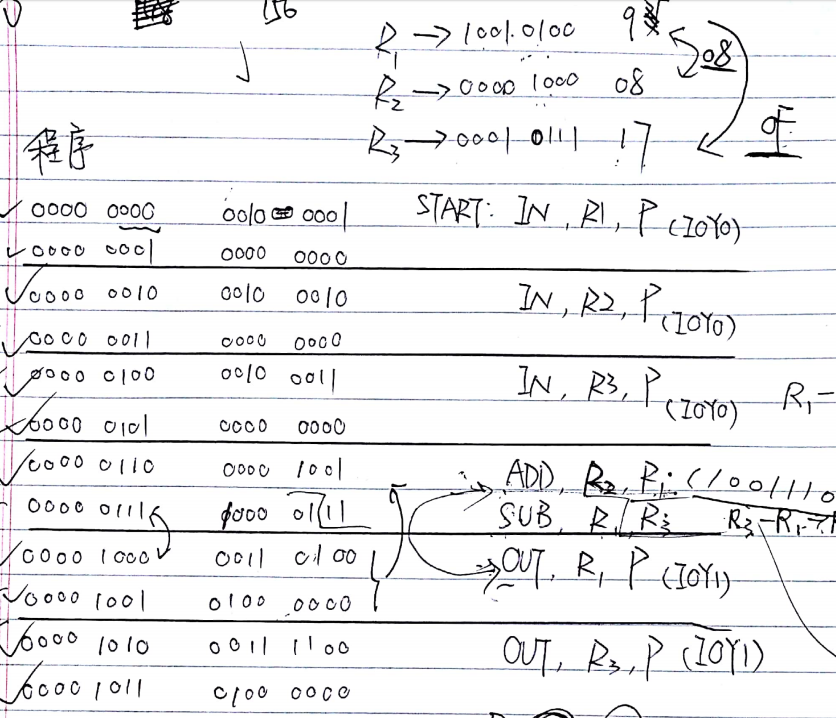 156
R1 → 1001.0100 9
R2 → 0000 1000 08 08
R3 → 0001 0111 17 0F
程序
0000 0000 0010 0001 START: IN, R1, P (IOY0)
0000 0001 0000 0000
0000 0010 0010 0010 IN, R2, P (IOY0)
0000 0011 0000 0000
0000 0100 0010 0011 IN, R3, P (IOY0) R1-
0000 0101 0000 0000
0000 0110 0000 1001 ADD, R2, R1
0000 0111 0000 0111 SUB, R1, R3 R3-R1→
0000 1000 0011 0100 OUT, R1, P (IOY1)
0000 1001 0100 0000
0000 1010 0011 1100 OUT, R3, P (IOY1)
0000 1011 0100 0000